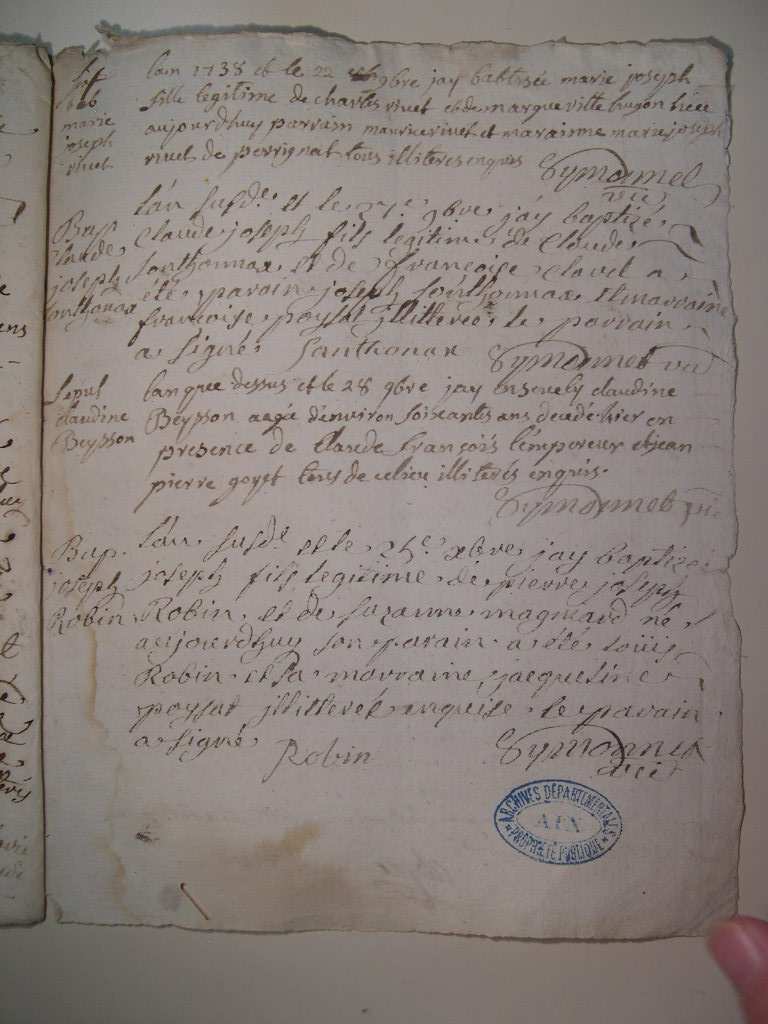 lan 1738 et le 22 9bre jay babtisée marie joseph
fille legitime de charles vivet et de marguerite hugon née
aujourdhuy parrain maurice vivet et marainne marie joseph
vivet de perrignat tous illiteres enquis
marie
joseph
vivet
Symonnet
vic
Bap
Claude
joseph
Santhonax
lán susd.e et le 27.e 9bre jáy baptizé
Claude joseph fils legitime de Claude
Santhonnax et de francoise clavel a
été parain joseph Santhonnax et marraine
francoise poysat jllitterée le parrain
a signé Santhonax Symonnet vic
Sepul
claudine
Beysson
lan que dessus et le 28 9bre jay ensevely claudine
Beysson aagée d'environ soixantes ans decedé hier en
presence de Claude françois lempereur et jean
pierre goyet tous de ce lieu illiterés enquis.
Symonnet vic
Bap.
joseph
Robin
lán susd.e et le 25.e xbre jay baptizé
joseph fils legitime de pierre joseph
Robin et de suzanne magniard né
aujourdhuy son parain a été louis
Robin et sa marraine jacqueline
poysat jllitteré enquise le parain
a signé
Robin
Symonnet
vic
ARCHIVES DÉPARTEMENTALES
AIN
PROPRIÉTÉ PUBLIQUE